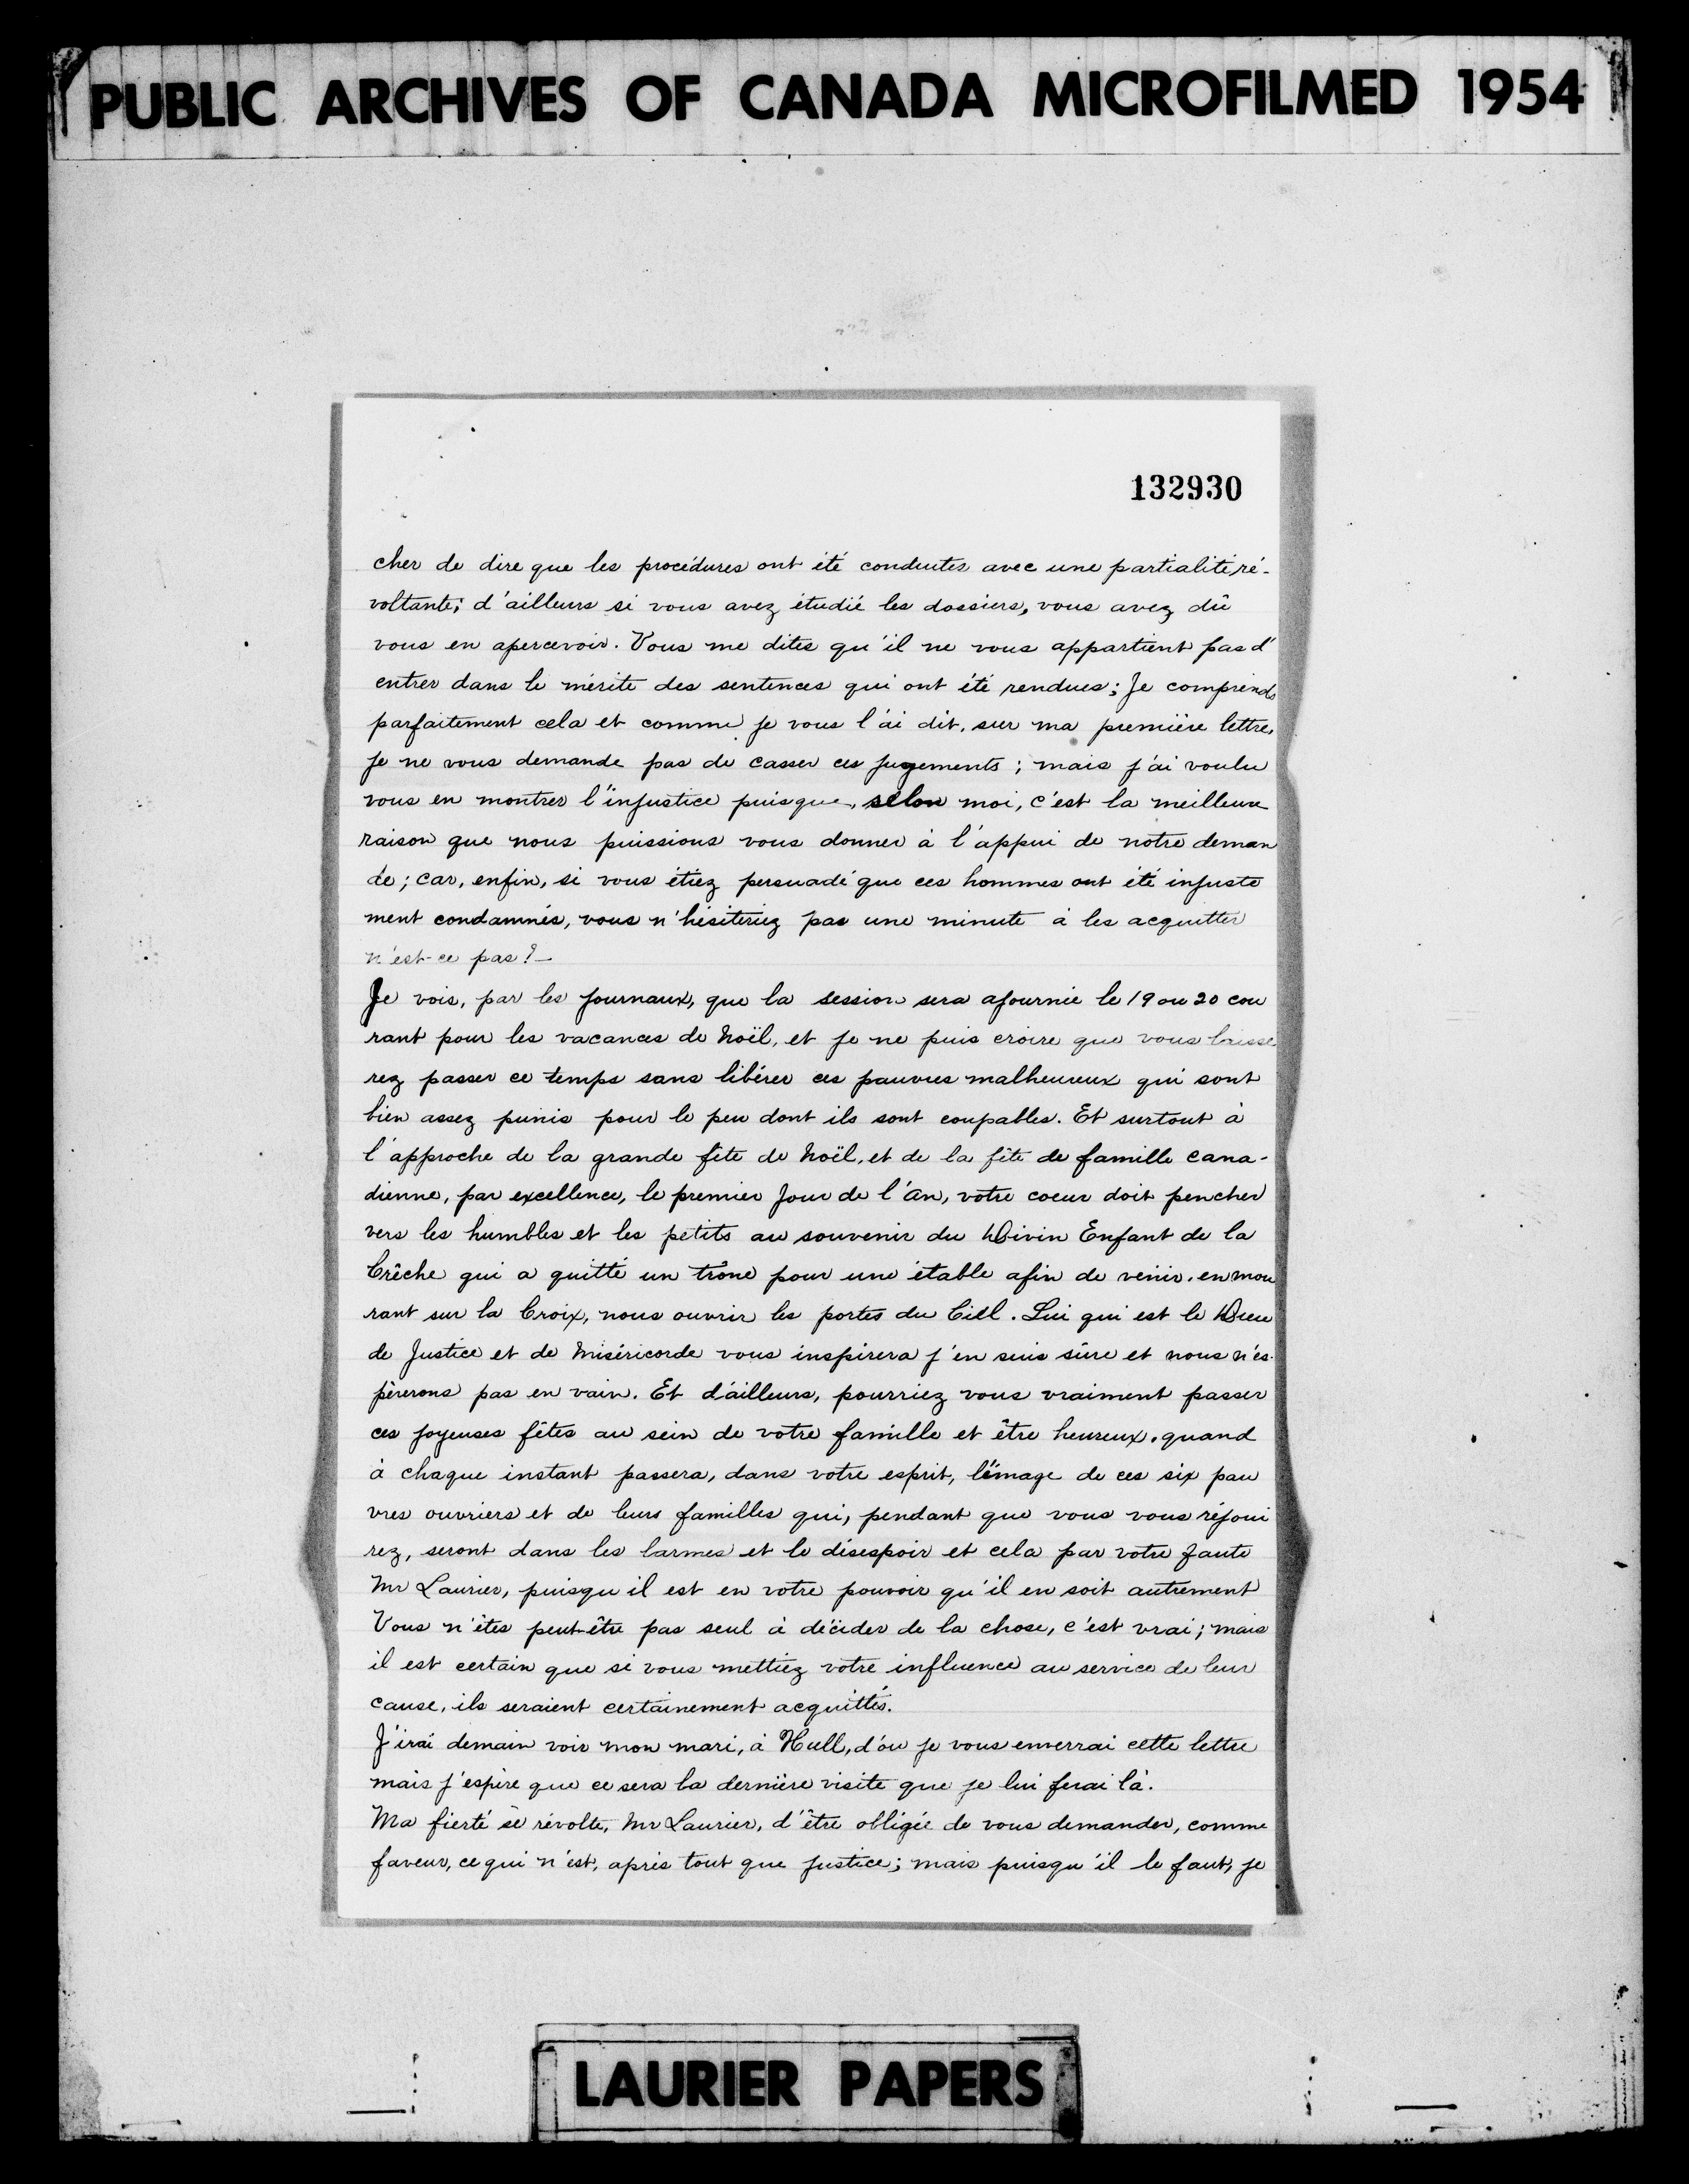 PUBLIC ARCHIVES OF CANADA MICROFILMED 1954
132930
cher de dire que les procédures ont été conduites avec une partialité ré-
voltante; d'ailleurs si vous avez étudié les dossiers, vous avez dû
vous en apercevoir. Vous me dites qu'il ne vous appartient pas d'
entrer dans le mérite des sentences qui ont été rendues; Je comprends
parfaitement cela et comme je vous l'ai dit, sur ma première lettre,
je ne vous demande pas de casser ces jugements; mais j'ai voulu
vous en montrer l'injustice puisque, selon moi, c'est la meilleure
raison que nous puissions vous donner à l'appui de notre deman
de; car, enfin, si vous étiez persuadé que ces hommes ont été injuste
ment condamnés, vous n'hésiteriez pas une minute à les acquitter
n'est-ce pas?_
Je vois, par les journaux, que la session sera ajournée le 19 ou 20 cou
rant pour les vacances de Noël, et je ne puis croire que vous laisse
rez passer ce temps sans libérer ces pauvres malheureux qui sont
bien assez punis pour le peu dont ils sont coupables. Et surtout à
l'approche de la grande fête de Noël, et de la fête de famille cana-
dienne, par excellence, le premier Jour de l'An, votre coeur doit pencher
vers les humbles et les petits au souvenir du Divin Enfant de la
Crêche qui a quitté un trône pour une étable afin de venir, en mou
rant sur la Croix, nous ouvrir les portes du Ciel. Lui qui est le Dieu
de Justice et de Miséricorde vous inspirera j'en suis sûre et nous n'es-
pèrerons pas en vain. Et d'ailleurs, pourriez vous vraiment passer
ces joyeuses fêtes au sein de votre famille et être heureux, quand
à chaque instant passera, dans votre esprit, l'image de ces six pau
vres ouvriers et de leurs familles qui, pendant que vous vous réjoui
rez, seront dans les larmes et le désespoir et cela par votre faute
Mr Laurier, puisqu'il est en votre pouvoir qu'il en soit autrement
Vous n'êtes peut-être pas seul à décider de la chose, c'est vrai; mais
il est certain que si vous mettiez votre influence au service de leur
cause, ils seraient certainement acquittés.
J'irai demain voir mon mari, à Hull, d'où je vous enverrai cette lettre
mais j'espère que ce sera la dernière visite que je lui ferai là.
Ma fierté se révolte, Mr Laurier, d'être obligée de vous demander, comme
faveur, ce qui n'est, après tout que justice; mais puisqu'il le faut, je
LAURIER PAPERS